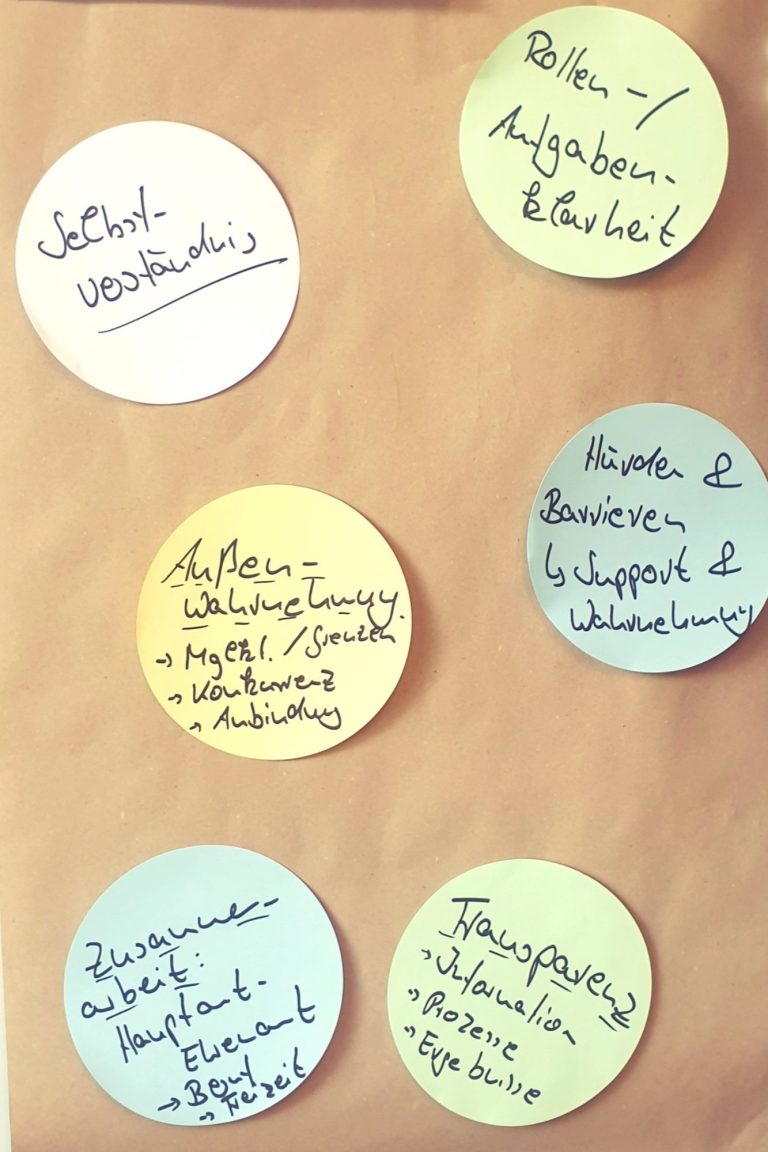 Rollen-/
Aufgaben-
klarheit
Selbst-
verständnis
Hürden &
Barrieren
↳ Support &
Wahrnehmung
Außen-
wahrnehmung
→ Mgekl. / Grenzen
→ Konkurrenz
→ Anbindung
Zusammen-
arbeit:
Hauptamt-
Ehrenamt
→ Beruf
→ Freizeit
Transparenz
→ Information
→ Prozesse
→ Ergebnisse